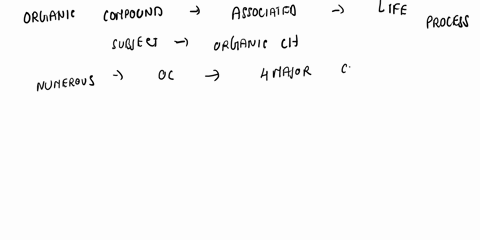 ORGANIC COMPOUND → ASSOCIATED → LIFE PROCESS
SUBJECT → ORGANIC CH
NUMEROUS → OC → 4 MAJOR C